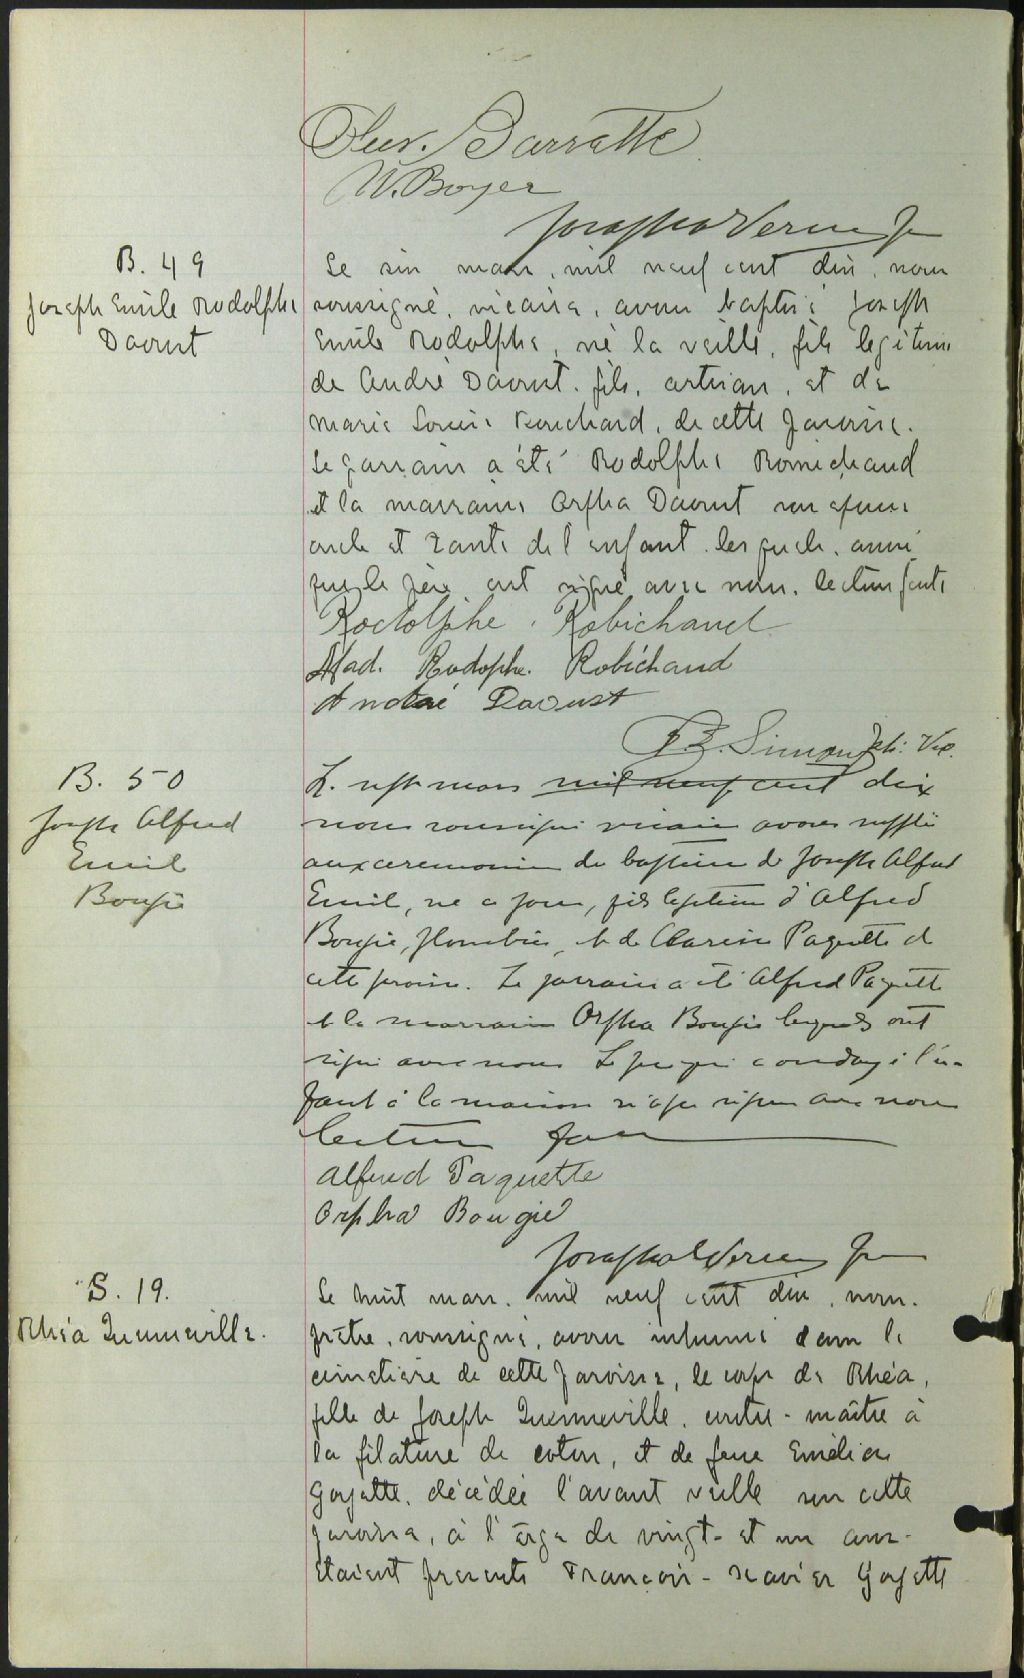 Oliv. Barrette
W. Boyer
B. 49
Joseph Emile Rodolphe
Daoust
Le six mars, mil neuf cent dix, nous
soussigné, vicaire, avons baptisé Joseph
Emile Rodolphe, né la veille, fils légitime
de André Daoust, fils, artisan, et de
Marie Louise, de cette paroisse.
Le parrain a été Rodolphe Robichaud
et la marraine Orpha Daoust son épouse
oncle et tante de l'enfant lesquels, ainsi
que le père ont signé avec nous. lecture faite
Rodolphe Robichaud
Mad. Rodophe. Robichaud
André Daoust
Simon Ptr. Vic.
B. 50
Joseph Alfred
Emil
Bougie
Le sept mars mil neuf cent dix
nous soussigné vicaire avons supplée
aux ceremonies du bapteme de Joseph Alfred
Emil, ne ce jour, fils legitime d'Alfred
Bougie, plombier, et de Clarisse Paquette de
cette paroisse. Le parrain a été Alfred Paquette
et la marraine Orpha Bougie lesquels ont
signé avec nous Le père qui a ondoyé l'en-
fant à la maison n'a pu signer avec nous
lecture faite
Alfred Paquette
Orpha Bougie
S. 19.
Rhéa Quenneville.
Le huit mars, mil neuf cent dix, nous.
prêtre, soussigné, avons inhumé dans le
cimetière de cette paroisse, le corps de Rhéa,
fille de Joseph Quenneville, contre-maître à
la filature de coton, et de feue Emélie
Goyette, décédée l'avant veille en cette
paroisse, à l'âge de vingt-et un ans.
Etaient presents François-Xavier Goyette